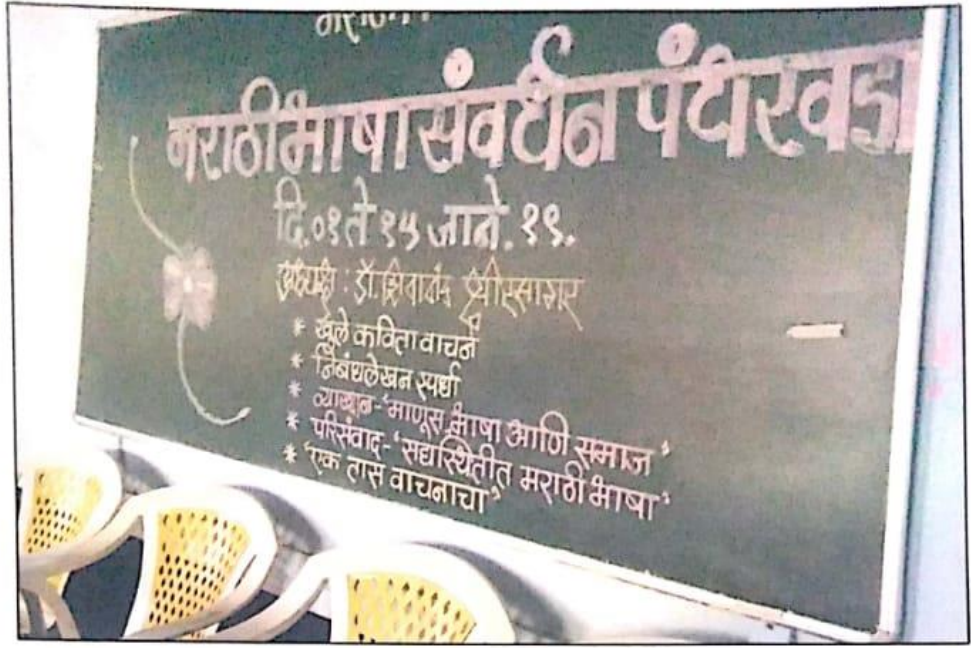 मराठी भाषा संवर्धन पंधरवडा
दि. ०१ ते १५ जाने. १९.
अध्यक्ष : डॉ. शिवानंद क्षीरसागर
* खुले कविता वाचन
* निबंधलेखन स्पर्धा
* व्याख्यान - 'माणूस, भाषा आणि समाज'
* परिसंवाद - 'सद्यस्थितीत मराठी भाषा'
* 'एक तास वाचनाचा'